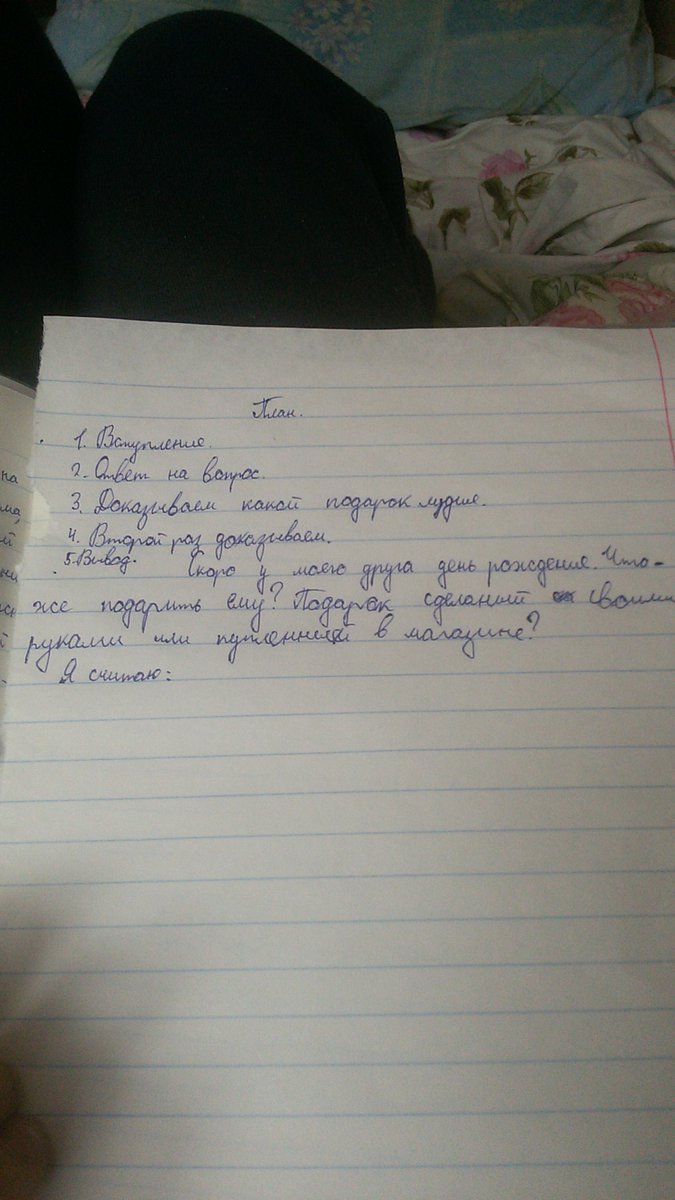 План.
1. Вступление.
2. Ответ на вопрос.
3. Доказываем какой подарок лудше.
4. Второй раз доказываем.
5. Вывод. Скоро у моего друга день рождения. Что-
же подарить ему? Подарок сделаний своими
руками или купленний в магазине?
Я считаю:
на
ма,